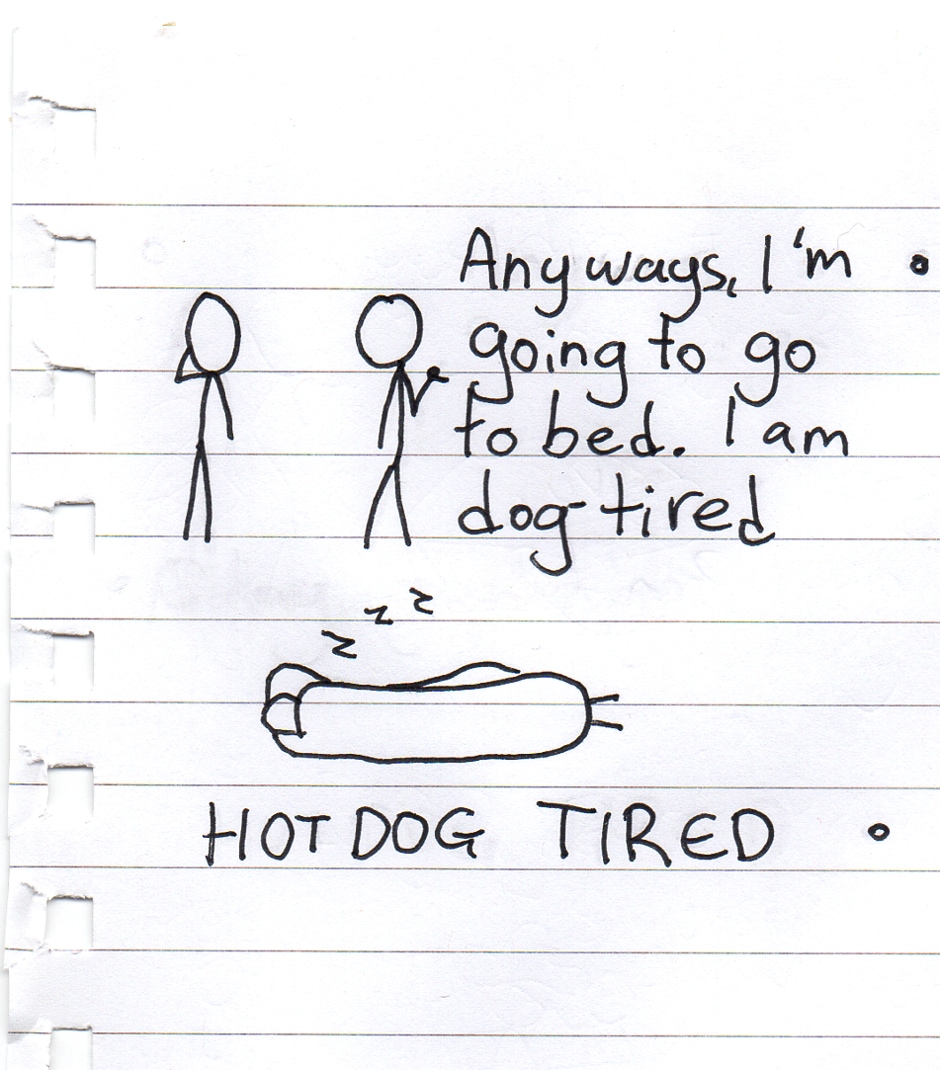 Anyways, I'm
going to go
to bed. I am
dog-tired
z z z
HOTDOG TIRED